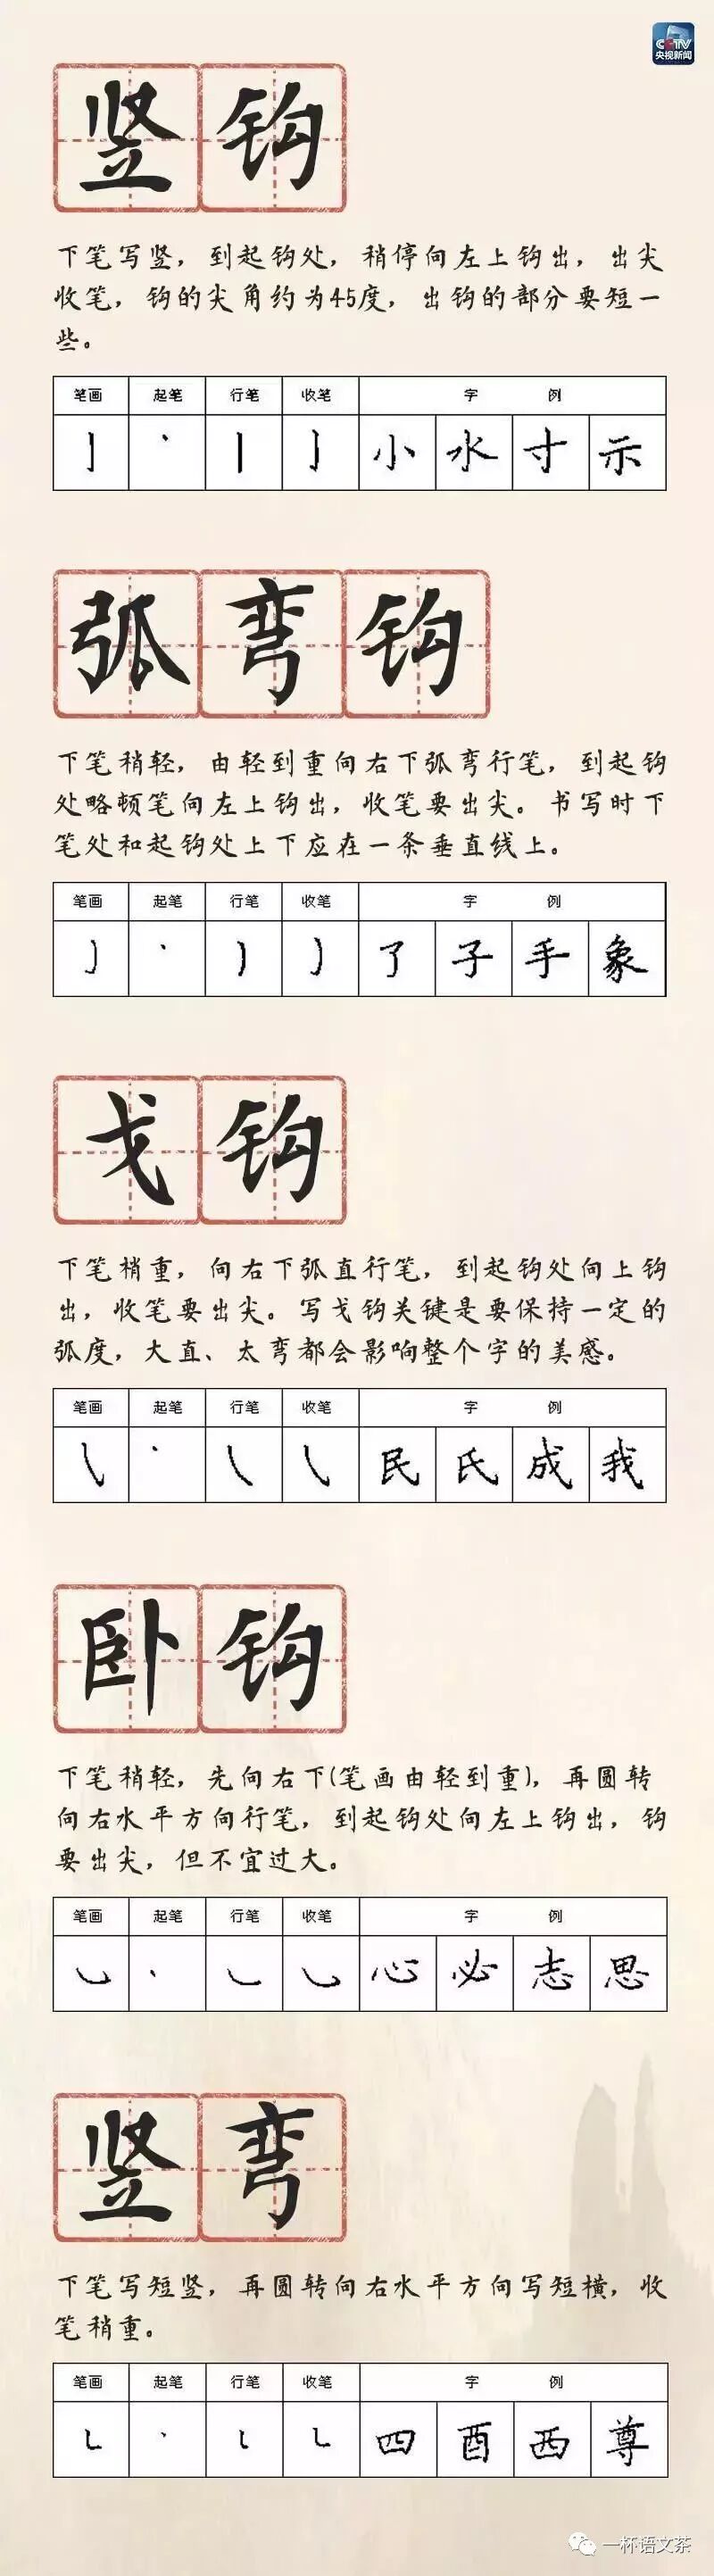 CCTV
央视新闻
竖钩
下笔写竖，到起钩处，稍停向左上钩出，出尖
收笔，钩的尖角约为45度，出钩的部分要短一
些。
笔画 起笔 行笔 收笔 字 例
亅 丶 丨 亅 小 水 寸 示
弧弯钩
下笔稍轻，由轻到重向右下弧弯行笔，到起钩
处略顿笔向左上钩出，收笔要出尖。书写时下
笔处和起钩处上下应在一条垂直线上。
笔画 起笔 行笔 收笔 字 例
了 子 手 象
戈钩
下笔稍重，向右下弧直行笔，到起钩处向上钩
出，收笔要出尖。写戈钩关键是要保持一定的
弧度，大直、太弯都会影响整个字的美感。
笔画 起笔 行笔 收笔 字 例
民 氏 成 我
卧钩
下笔稍轻，先向右下(笔画由轻到重)，再圆转
向右水平方向行笔，到起钩处向左上钩出，钩
要出尖，但不宜过大。
笔画 起笔 行笔 收笔 字 例
心 必 志 思
竖弯
下笔写短竖，再圆转向右水平方向写短横，收
笔稍重。
笔画 起笔 行笔 收笔 字 例
四 酉 西 尊
一杯语文茶